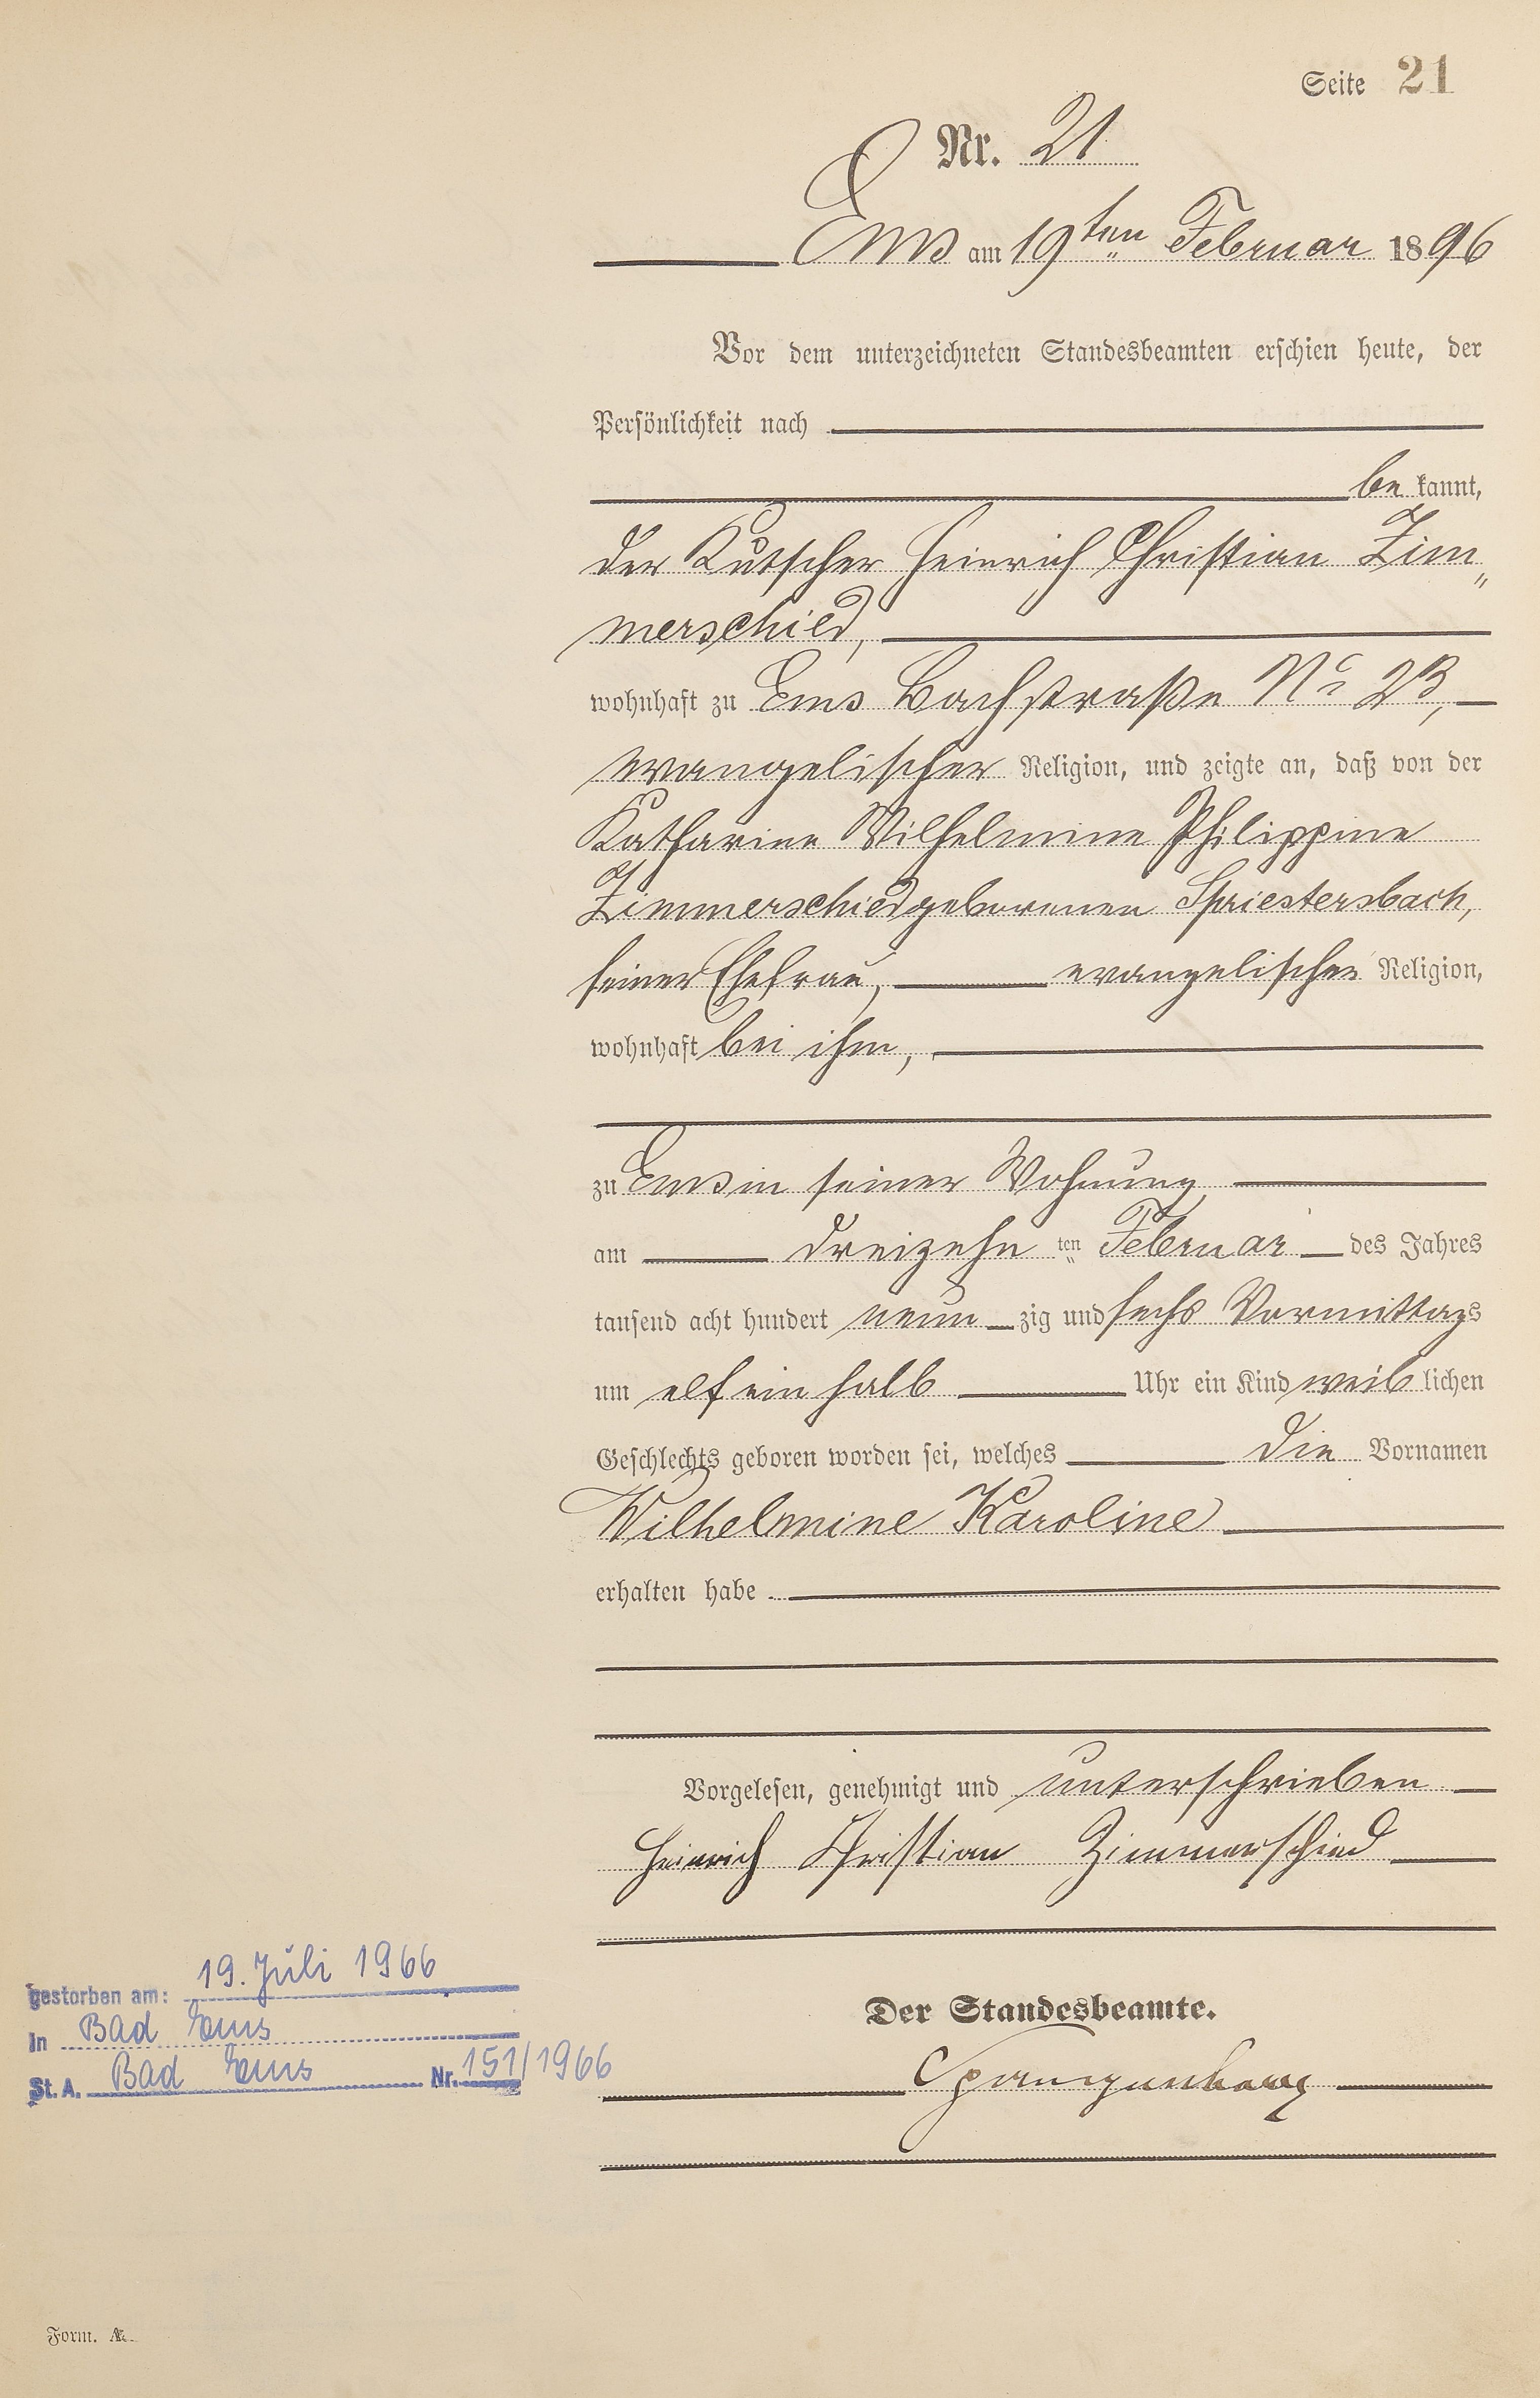 Seite 21
Nr. 21
Ems am 19ten Februar 1896
Vor dem unterzeichneten Standesbeamten erschien heute, der
Persönlichkeit nach
be kannt,
der Kutscher Heinrich Christian Zim„
merschied,
wohnhaft zu Ems Bachstraße No 23,
evangelischer Religion, und zeigte an, daß von der
Katharine Wilhelmine Philippine
Zimmerschied geborenen Spriestersbach,
seiner Ehefrau, evangelischer Religion,
wohnhaft bei ihm,
zu Ems in seiner Wohnung
am dreizehn ten Februar des Jahres
tausend acht hundert neun zig und sechs Vormittags
um elf ein halb Uhr ein Kind weib lichen
Geschlechts geboren worden sei, welches die Vornamen
Wilhelmine Karoline
erhalten habe
Vorgelesen, genehmigt und unterschrieben
Heinrich Christian Zimmerschied
Der Standesbeamte.
Spangenberg
gestorben am: 19. Juli 1966
in Bad Ems
St. A. Bad Ems Nr. 151/1966
Form. A.